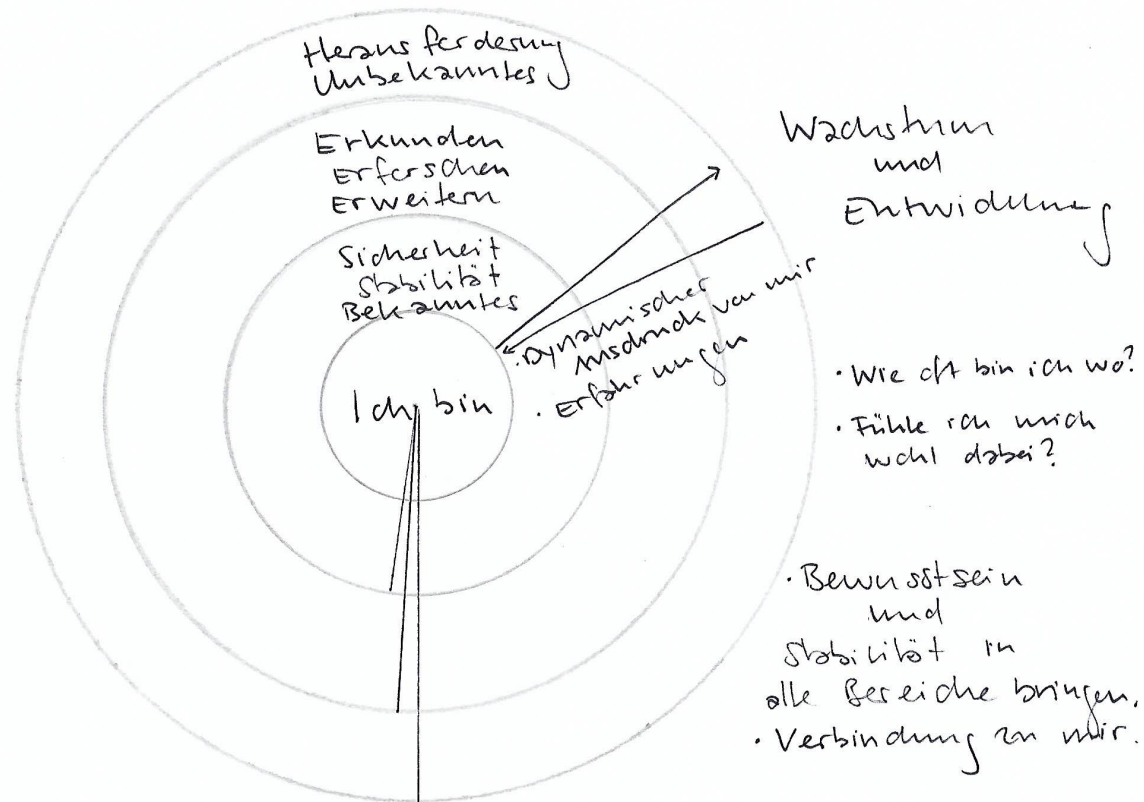 Herausforderung
Unbekanntes
Erkunden
Erforschen
Erweitern
Sicherheit
Stabilität
Bekanntes
Ich bin
· Dynamischer
Ausdruck von mir
· Erfahrungen
Wachstum
und
Entwicklung
· Wie oft bin ich wo?
· Fühle ich mich
wohl dabei?
· Bewusstsein
und
Stabilität in
alle Bereiche bringen.
· Verbindung zu mir.